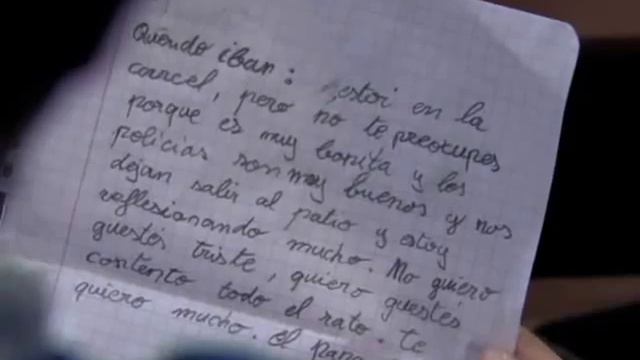 Querido iban: estoi en la
carcel, pero no te preocupes
porque es muy bonita y los
policias son muy buenos y nos
dejan salir al patio y estoy
reflesionando mucho. No quiero
questés triste, quiero questés
contento todo el rato. te
quiero mucho. el papa